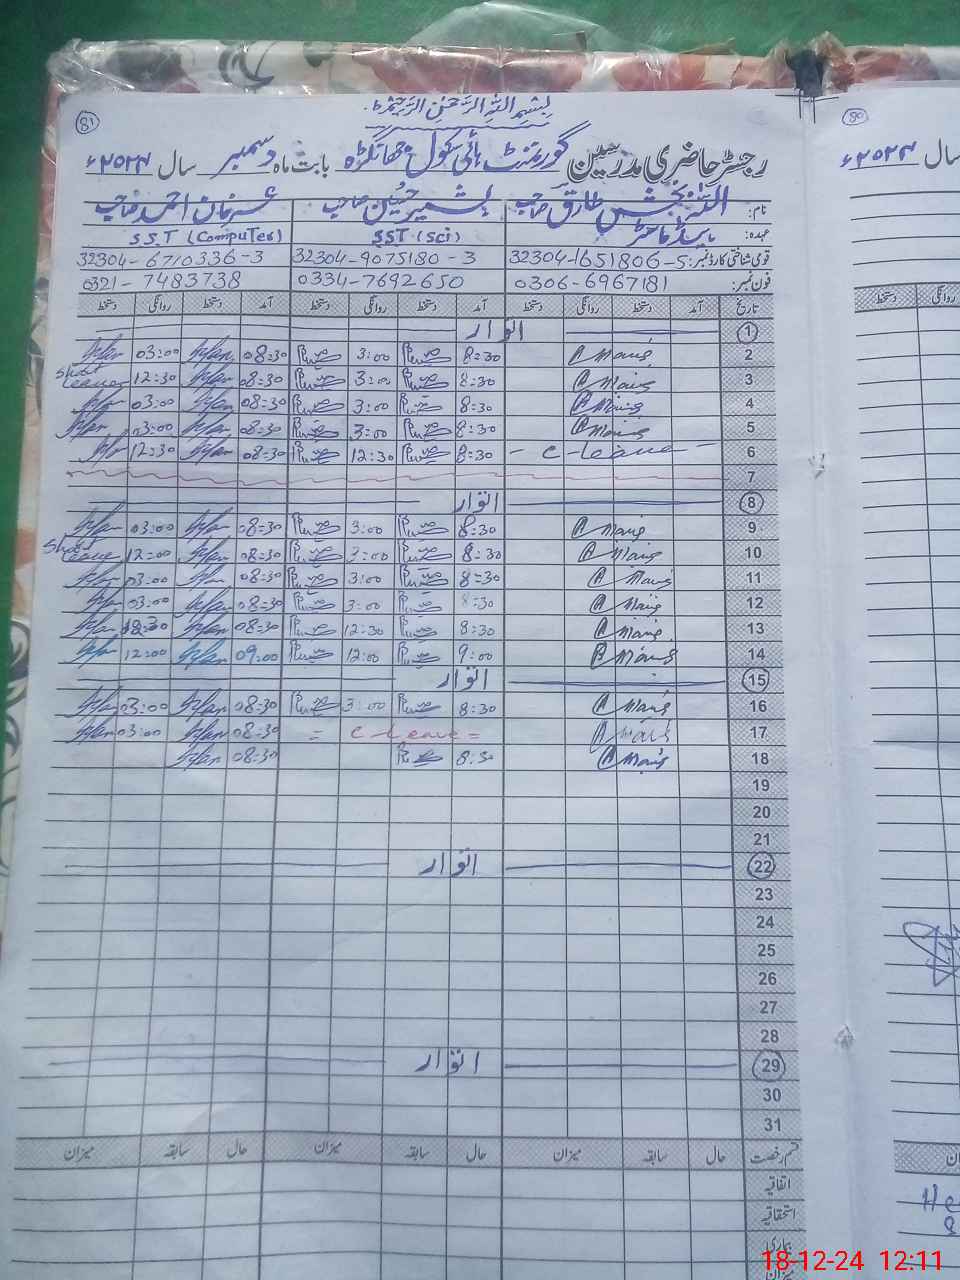 بسم اللہ الرحمٰن الرحیم
81
80
رجسٹر حاضری مدرسین گورنمنٹ ہائی سکول جھانگڑہ بابت ماہ دسمبر سال ۲۰۲۴ء
سال ۲۰۲۴ء
نام: اللہ بخش طارق صاحب بشیر حسین صاحب عرفان احمد صاحب
عہدہ: ہیڈ ماسٹر SST (Sci) S.S.T (Computer)
قومی شناختی کارڈ نمبر: 32304-1651806-5 32304-9075180-3 32304-6710336-3
فون نمبر: 0306-6967181 0334-7692650 0321-7483738
تاریخ آمد دستخط روانگی دستخط آمد دستخط روانگی دستخط آمد دستخط روانگی دستخط
روانگی دستخط
1 اتوار
2 8:30 3:00 08:30 03:00
3 8:30 3:00 08:30 12:30 Shot leave
4 8:30 3:00 08:30 03:00
5 8:30 3:00 08:30 03:00
6 - C-leave - 8:30 12:30 08:30 12:30
7
8 اتوار
9 8:30 3:00 08:30 03:00
10 8:30 3:00 08:30 12:00 Shot leave
11 8:30 3:00 08:30 03:00
12 8:30 3:00 08:30 03:00
13 8:30 12:30 08:30
14 9:00 12:00 09:00 12:00
15 اتوار
16 8:30 3:00 08:30 03:00
17 = C Leave = 08:30 03:00
18 8:30 08:30
19
20
21
22 اتوار
23
24
25
26
27
28
29 اتوار
30
31
قسم رخصت حال سابقہ میزان حال سابقہ میزان حال سابقہ میزان
اتفاقیہ
استحقاقیہ
بیماری
میزان
18-12-24 12:11